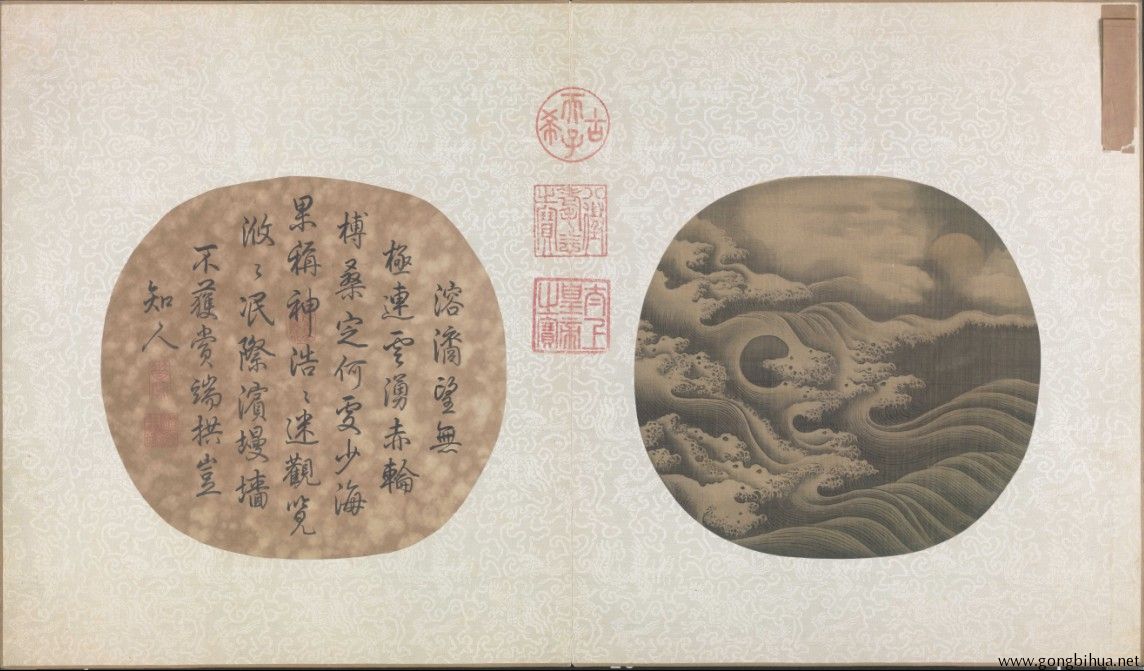 溶潏望無
極連雲湧赤輪
榑桑定何處少海
果稱神浩〻迷觀覽
浟〻泯際濱墁墻
不獲賞端拱豈
知人
古希天子
八徵耄念之寶
太上皇帝之寶
www.gongbihua.net